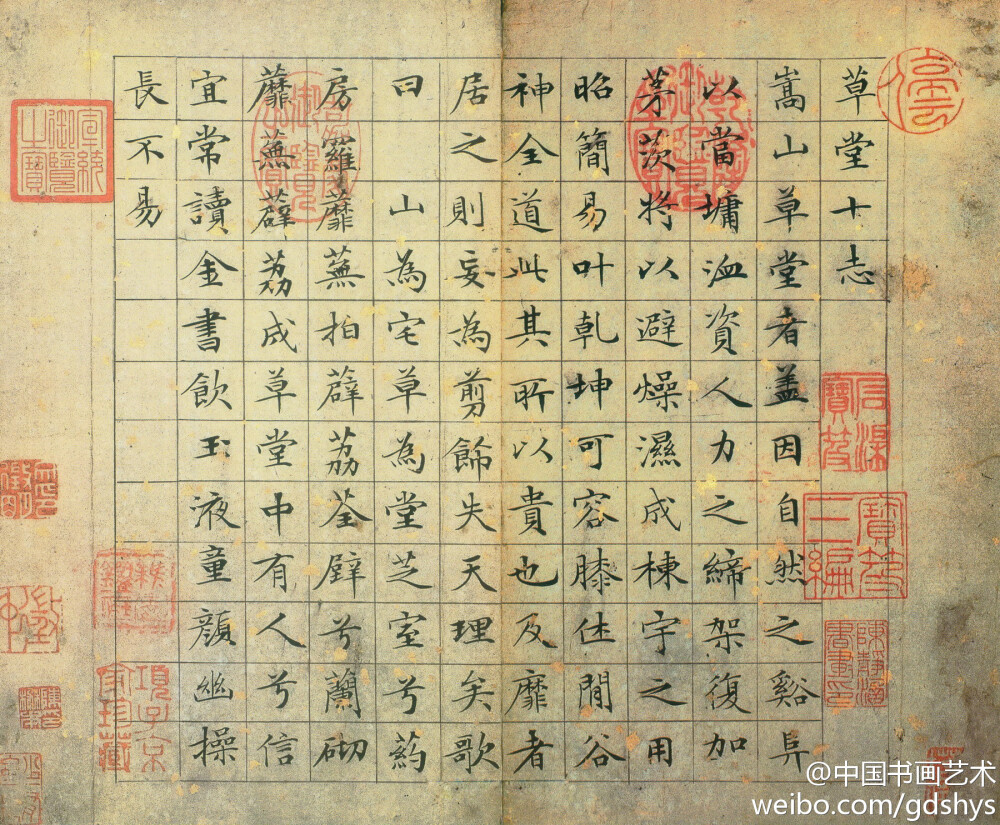 草堂十志
嵩山草堂者盖因自然之谿阜
以當墉洫資人力之締架復加
茅茨將以避燥濕成棟宇之用
昭簡易叶乾坤可容膝休閒谷
神全道此其所以貴也及靡者
居之則妄為剪餙失天理矣歌
曰山為宅草為堂芝室兮葯
房羅蘼蕪拍薜荔荃壁兮蘭砌
蘼蕪薜荔成草堂中有人兮信
宜常讀金書飲玉液童顏幽操
長不易
石渠寶笈
寶笈三編
宣統御覽之寶
項子京家珍藏
@中国书画艺术
weibo.com/gdshys